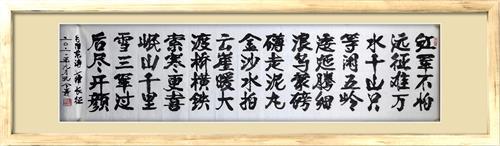 红军不怕
远征难万
水千山只
等闲五岭
逶迤腾细
浪乌蒙磅
礴走泥丸
金沙水拍
云崖暖大
渡桥横鉄
索寒更喜
岷山千里
雪三军过
后尽开颜
毛泽东诗 长征